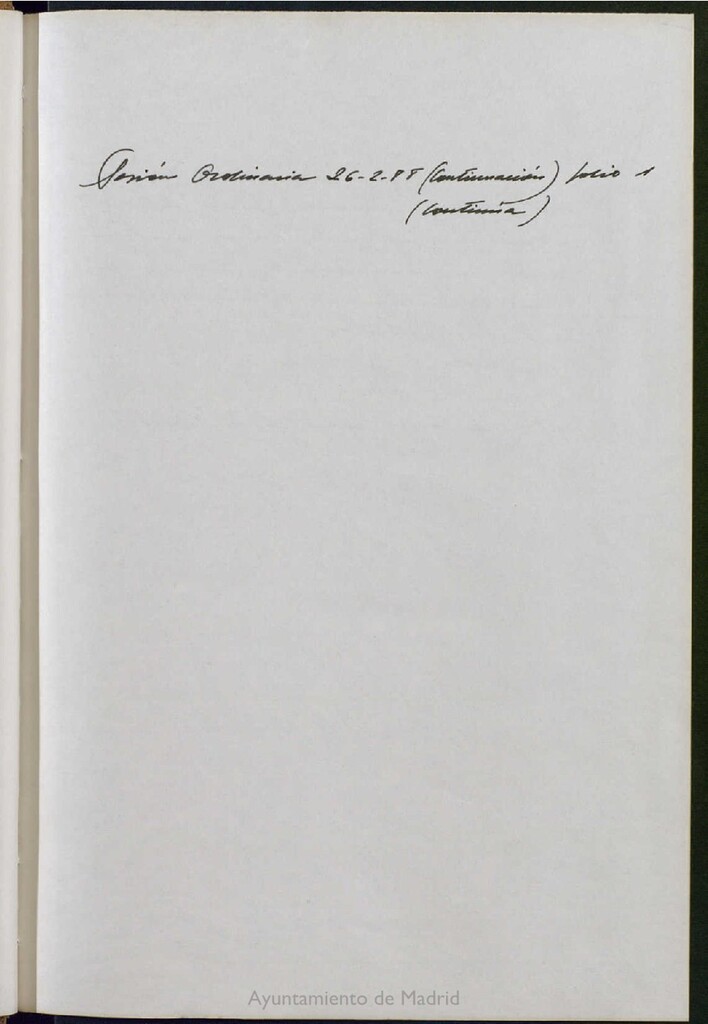 Sesión Ordinaria 26-2-88 (Continuación) folio 1
(Continúa)
Ayuntamiento de Madrid